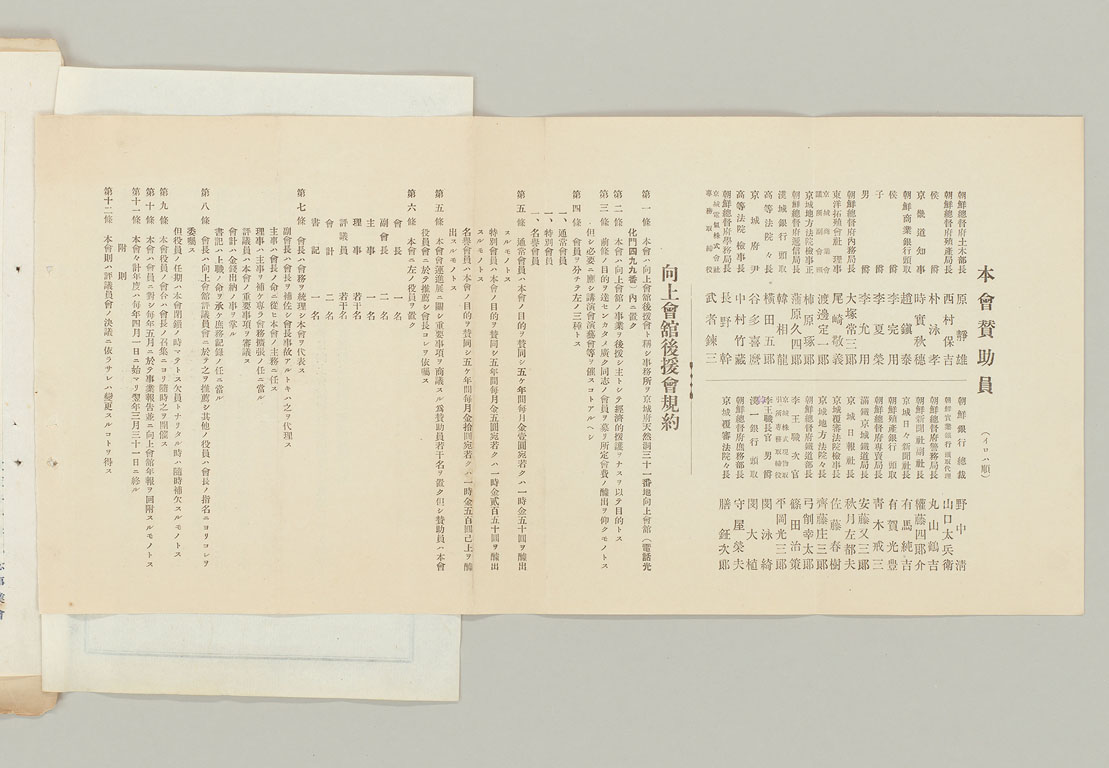 本會贊助員
（イロハ順）
朝鮮總督府土木部長 原靜雄
朝鮮總督府殖產局長 西村保吉
侯爵 朴泳孝
京畿道知事 時實秋穗
朝鮮商業銀行頭取 趙鎭泰
侯爵 李完用
子爵 李夏榮
男爵 李允用
朝鮮總督府內務局長 大塚常三郎
東洋拓殖會社理事 尾崎敬義
京城商業會議所副會頭 渡邊定一郎
京城地方法院檢事正 柿原琢郎
朝鮮總督府遞信局長 蒲原久四郎
漢城銀行頭取 韓相龍
高等法院々長 橫田五郎
京城府尹 谷多喜磨
高等法院檢事長 中村竹藏
朝鮮總督府學務局長 長野幹
京城電氣株式會社專務取締役 武者鍊三
朝鮮銀行總裁 野中淸
朝鮮實業銀行頭取代理 山口太兵衞
朝鮮總督府警務局長 丸山鶴吉
朝鮮新聞社副社長 權藤四郎介
京城日々新聞社長 有馬純吉
朝鮮殖產銀行頭取 有賀光豊
朝鮮總督府專賣局長 靑木戒三
滿鐵京城鐵道局長 安藤又三郎
京城日報社長 秋月左都夫
京城覆審法院檢事長 佐藤春樹
京城地方法院々長 齊藤庄三郎
朝鮮總督府鐵道部長 弓削幸太郎
李王職次官 篠田治策
京城株式現物取引所專務取締役 平岡光三郎
李王職長官男爵 閔泳綺
漢一銀行頭取 閔大植
朝鮮總督府庶務部長 守屋榮夫
京城覆審法院々長 膳鉦次郎
向上會館後援會規約
第一條 本會ハ向上會館後援會ト稱シ事務所ヲ京城府天然洞三十一番地向上會館（電話光
化門四九九番）內ニ置ク
第二條 本會ハ向上會館ノ事業ヲ後援シ主トシテ經濟的援護ヲナスヲ以テ目的トス
第三條 前條ノ目的ヲ達センカタメ廣ク同志ノ會員ヲ募リ所定會費ノ醵出ヲ仰クモノトス
但シ必要ニ應シ講演會演藝會等ヲ催スコトアルヘシ
第四條 會員ヲ分チテ左ノ三種トス
一、通常會員
一、特別會員
一、名譽會員
第五條 通常會員ハ本會ノ目的ヲ贊同シ五ケ年間每月金壹圓宛若クハ一時金五十圓ヲ醵出
スルモノトス
特別會員ハ本會ノ目的ヲ贊同シ五年間每月金五圓宛若クハ一時金貳百五十圓ヲ醵出
スルモノトス
名譽會員ハ本會ノ目的ヲ贊同シ五ケ年間每月金拾圓宛若クハ一時金五百圓已上ヲ醵
出スルモノトス
第五條 本會會運進展ニ關シ重要事項ヲ商議スル爲贊助員若干名ヲ置ク但シ贊助員ハ本會
役員會ニ於テ推薦シ會長コレヲ依囑ス
第六條 本會ニ左ノ役員ヲ置ク
會長 一名
副會長 二名
主事 一名
理事 若干名
評議員 若干名
會計 二名
書記 一名
第七條 會長ハ會務ヲ統理シ本會ヲ代表ス
副會長ハ會長ヲ補佐シ會長事故アルトキハ之ヲ代理ス
主事ハ會長ノ命ニ從ヒ本會ノ主務ニ任ス
理事ハ主事ヲ補ケ專ラ會務擴張ノ任ニ當ル
評議員ハ本會ノ重要事項ヲ審議ス
會計ハ金錢出納ノ事ヲ掌ル
書記ハ上職ノ命ヲ承ケ庶務記錄ノ任ニ當ル
第八條 會長ハ向上會館評議員會ニ於テ之ヲ推薦シ其他ノ役員ハ會長ノ指名ニヨリコレヲ
委囑ス
但役員ノ任期ハ本會閉鎖ノ時マテトス欠員トナリタル時ハ隨時補欠スルモノトス
第九條 本會役員ノ會合ハ會長ノ召集ニヨリ隨時之ヲ開催ス
第十條 本會ハ會員ニ對シ每年五月ニ於テ事業報告並ニ向上會館年報ヲ回附スルモノトス
第十一條 本會々計年度ハ每年四月一日ニ始マリ翌年三月三十一日ニ終ル
附則
第十二條 本會則ハ評議員會ノ決議ニ依ラサレハ變更スルコトヲ得ス